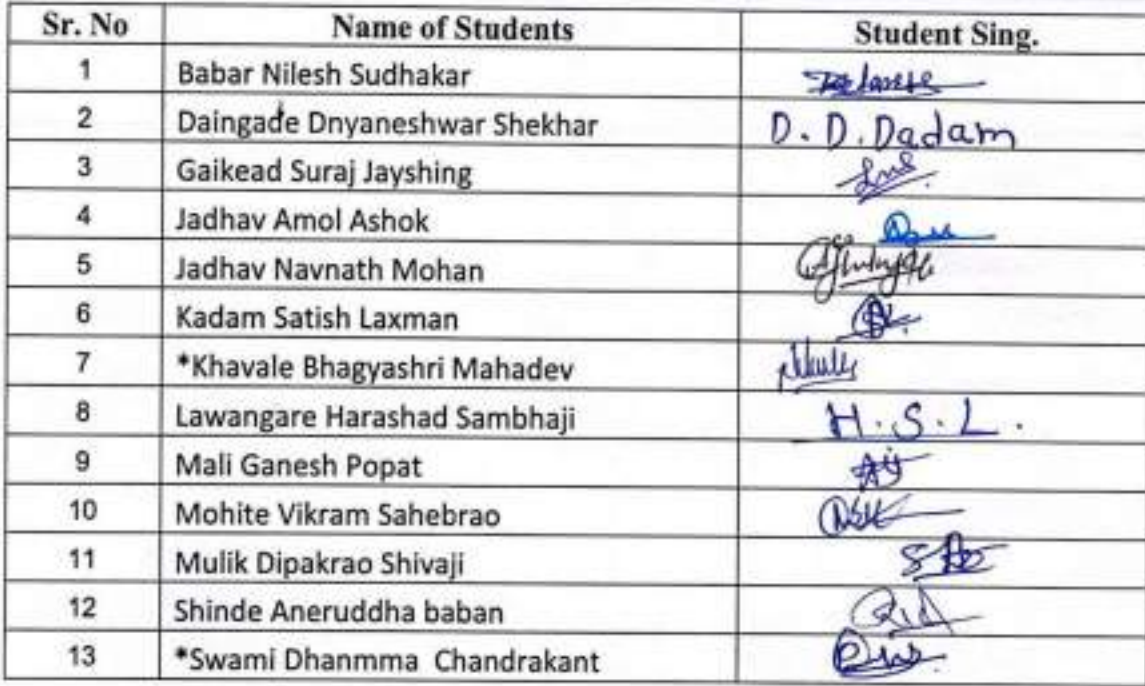 Sr. No Name of Students Student Sing.
1 Babar Nilesh Sudhakar
2 Daingade Dnyaneshwar Shekhar D. D. Dadam
3 Gaikead Suraj Jayshing
4 Jadhav Amol Ashok
5 Jadhav Navnath Mohan
6 Kadam Satish Laxman
7 *Khavale Bhagyashri Mahadev
8 Lawangare Harashad Sambhaji H.S.L.
9 Mali Ganesh Popat
10 Mohite Vikram Sahebrao
11 Mulik Dipakrao Shivaji
12 Shinde Aneruddha baban
13 *Swami Dhanmma Chandrakant